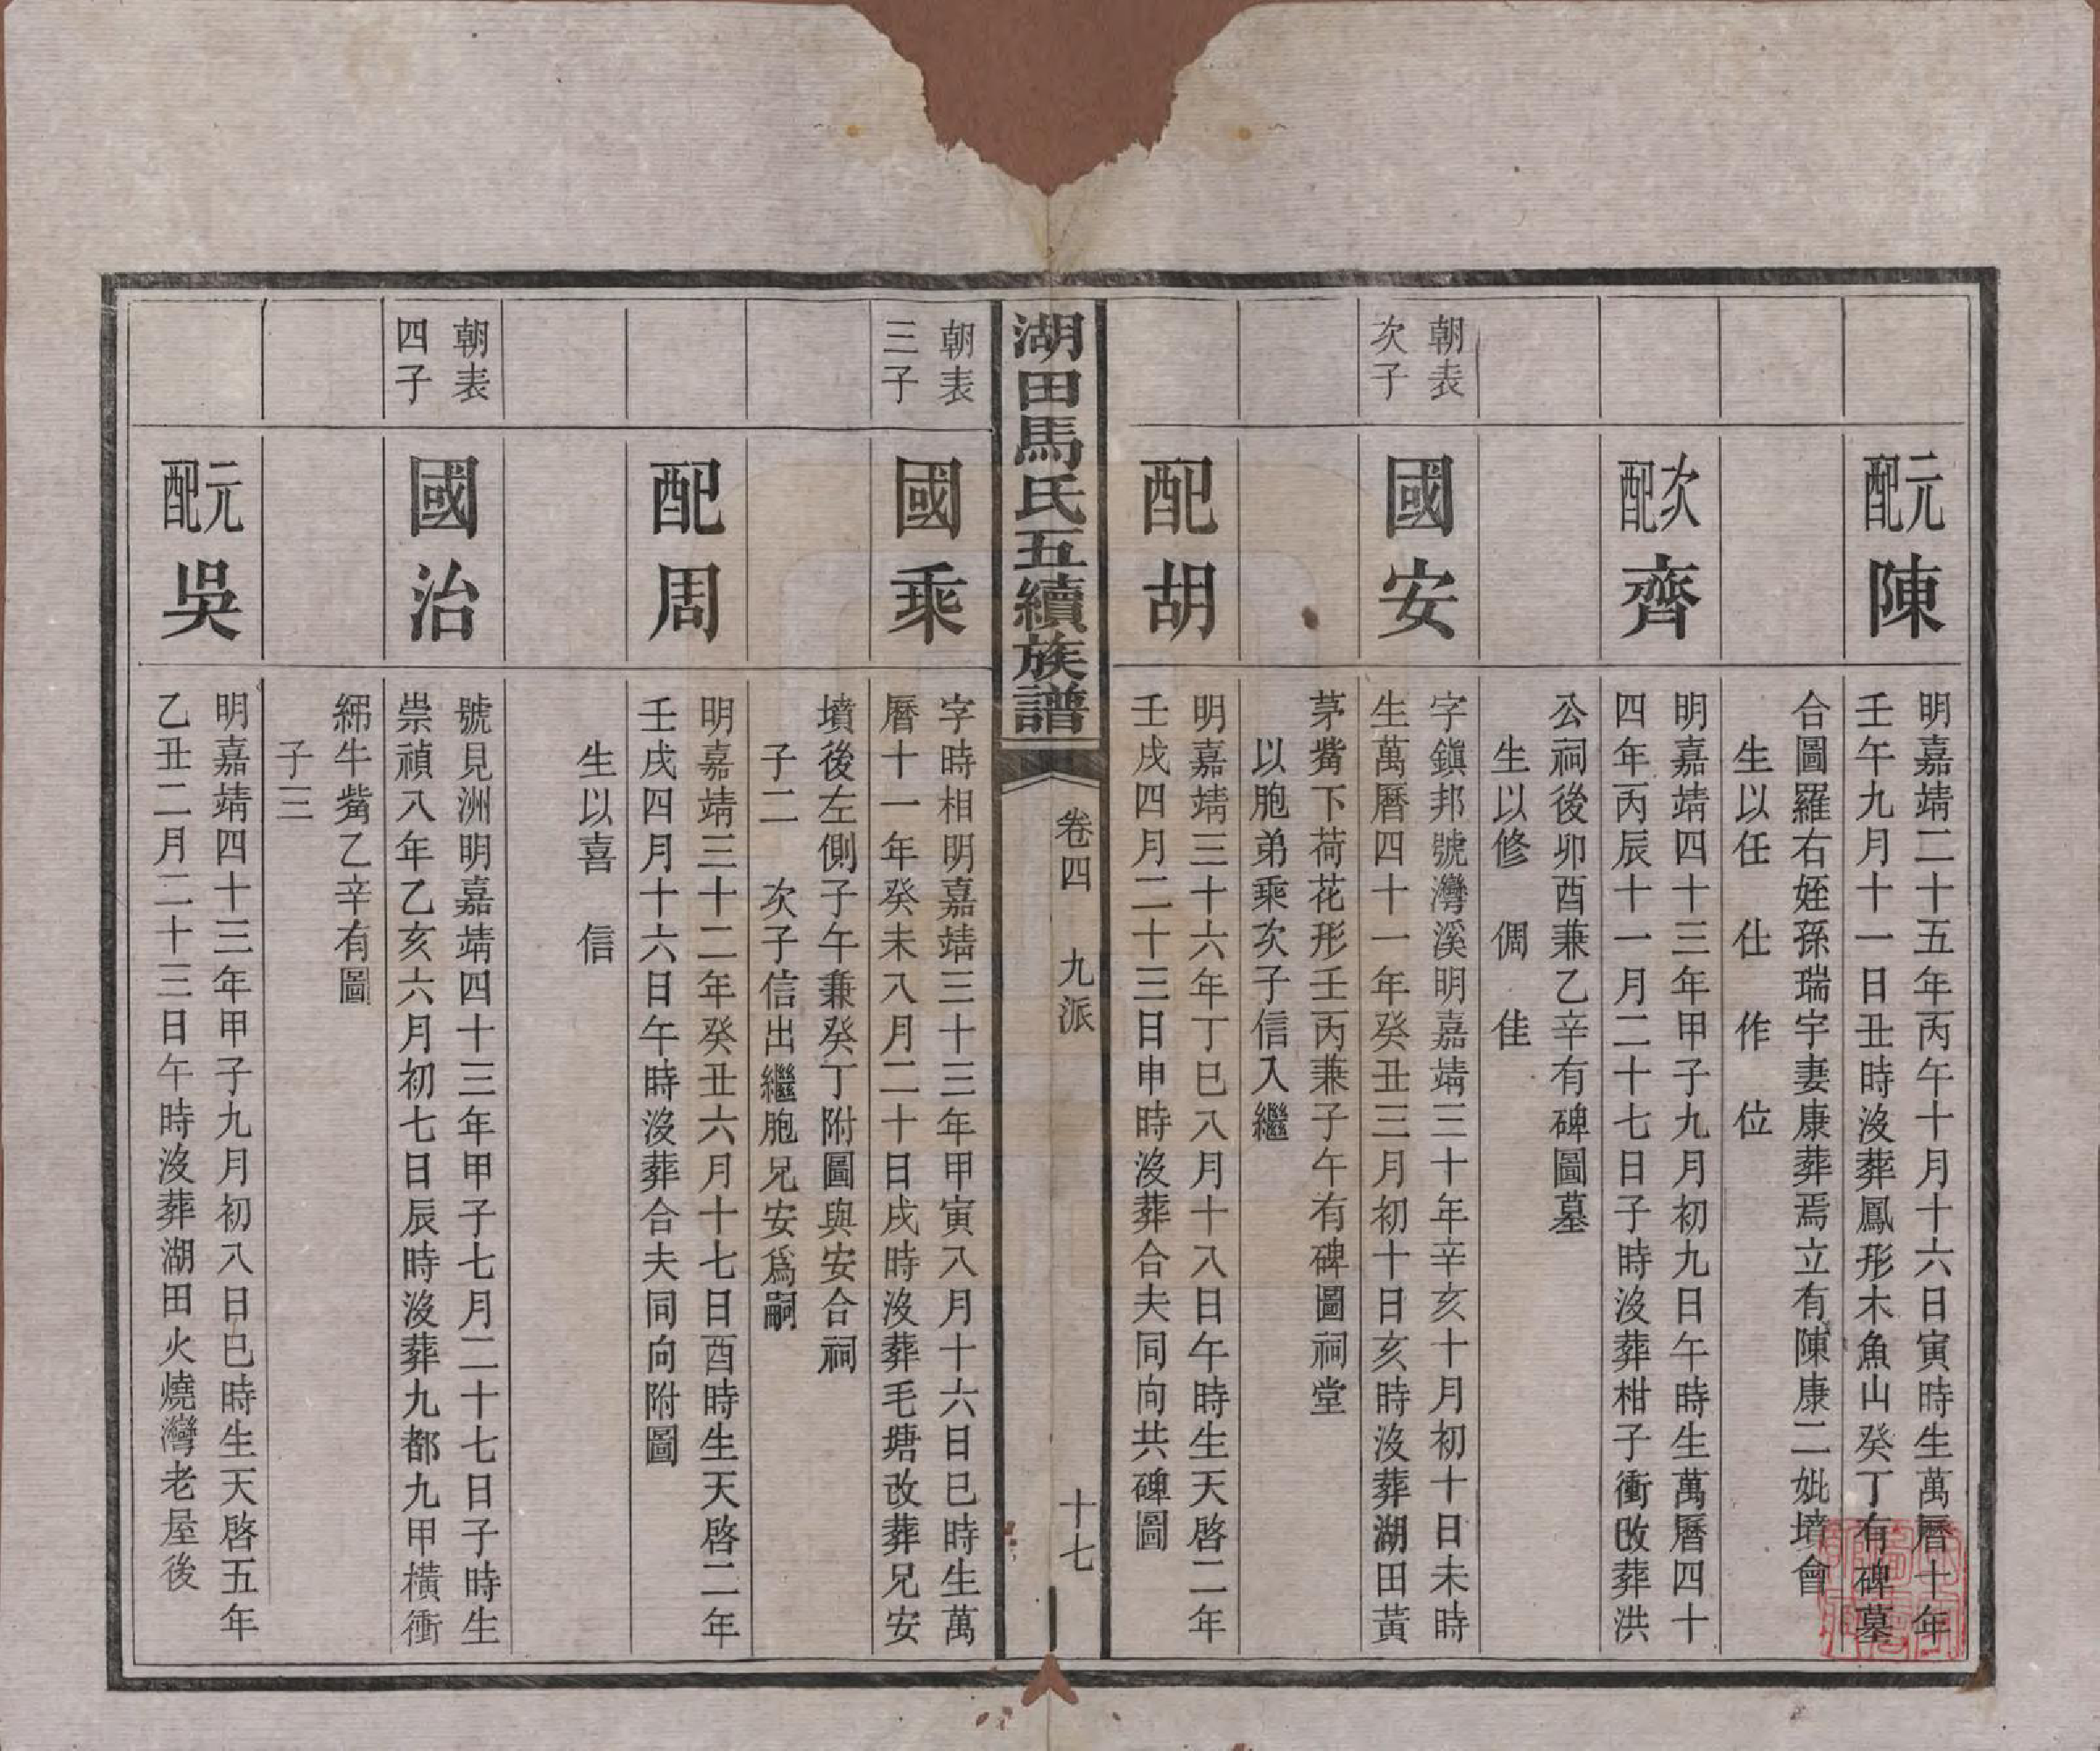 元配陳
明嘉靖二十五年丙午十月十六日寅時生萬曆十年
壬午九月十一日丑時沒葬鳳形木魚山癸丁有碑墓
合圖羅右姪孫瑞宇妻康葬焉立有陳康二妣墳會
生以任 仕 作 位
次配齊
明嘉靖四十三年甲子九月初九日午時生萬曆四十
四年丙辰十一月二十七日子時沒葬柑子衝改葬洪
公祠後卯酉兼乙辛有碑圖墓
生以修 倜 佳
朝表
次子
國安
字鎮邦號灣溪明嘉靖三十年辛亥十月初十日未時
生萬曆四十一年癸丑三月初十日亥時沒葬湖田黃
茅觜下荷花形壬丙兼子午有碑圖祠堂
以胞弟乘次子信入繼
配胡
明嘉靖三十六年丁巳八月十八日午時生天啓二年
壬戌四月二十三日申時沒葬合夫同向共碑圖
湖田馬氏五續族譜
卷四 九派
十七
朝表
三子
國乘
字時相明嘉靖三十三年甲寅八月十六日巳時生萬
曆十一年癸未八月二十日戌時沒葬毛塘改葬兄安
墳後左側子午兼癸丁附圖與安合祠
子二 次子信出繼胞兄安爲嗣
配周
明嘉靖三十二年癸丑六月十七日酉時生天啓二年
壬戌四月十六日午時沒葬合夫同向附圖
生以喜 信
朝表
四子
國治
號見洲明嘉靖四十三年甲子七月二十七日子時生
崇禎八年乙亥六月初七日辰時沒葬九都九甲橫衝
綿牛觜乙辛有圖
子三
元配吳
明嘉靖四十三年甲子九月初八日巳時生天啓五年
乙丑二月二十三日午時沒葬湖田火燒灣老屋後